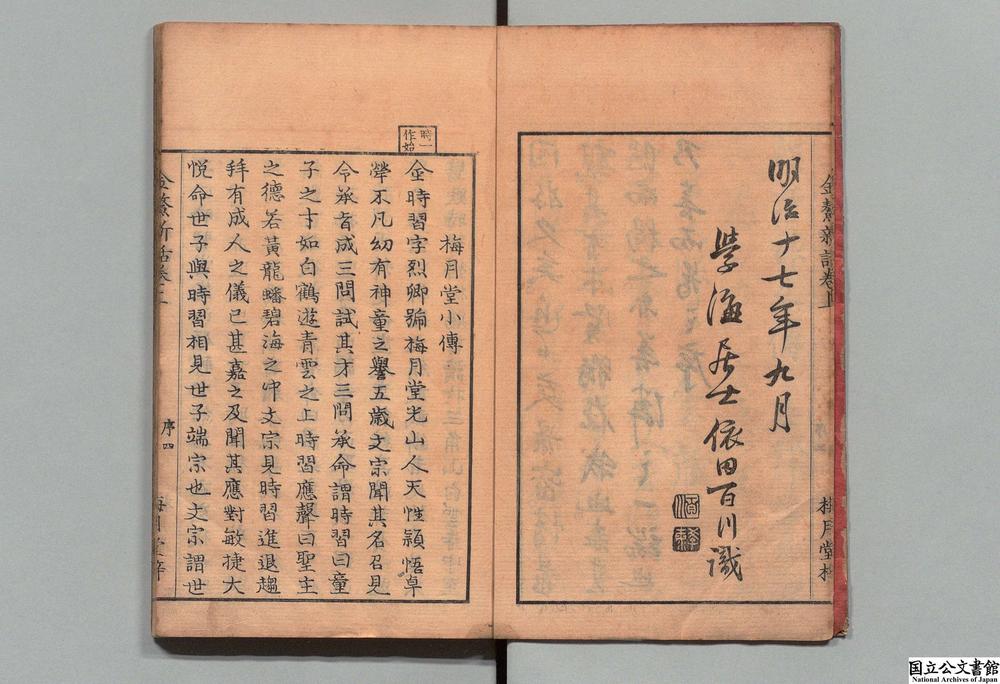 金鰲新話卷上
梅月堂梓
明治十七年九月
學海居士依田百川識
時一
作始
梅月堂小傳
金時習字烈卿號梅月堂光山人天性穎悟卓
犖不凡幼有神童之譽五歲文宗聞其名召見
令承旨成三問試其才三問承命謂時習曰童
子之才如白鶴遊青雲之上時習應聲曰聖主
之德若黃龍蟠碧海之中文宗見時習進退趨
拜有成人之儀已甚嘉之及聞其應對敏捷大
悅命世子與時習相見世子端宗也文宗謂世
金鰲新話卷上
序四
梅月堂梓
国立公文書館
National Archives of Japan